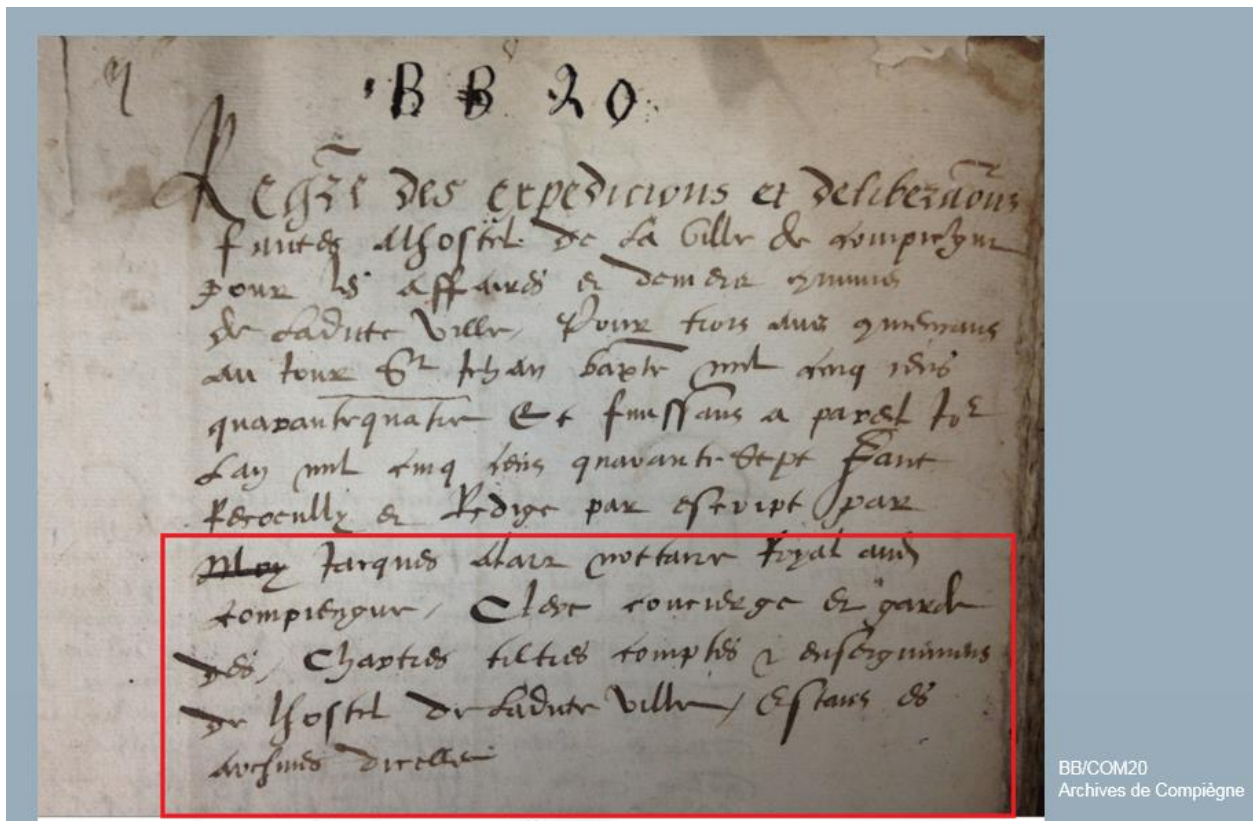 BB 20
Regre des expedicions et deliberaons
faictes alhostel de la ville de compiengne
pour les affaires et deniers communs
de ladicte ville, Pour trois ans commencans
au jour St Jehan bapte mil cinq cens
quarantequatre Et finissans a pareil Jor
Lan mil cinq cens quarante Sept
Recoeully et Redige par escript par
Moy Jacques notaire Royal aud
compiengne, Clerc concierge et garde
des, Chartres tiltres comptes & enseignemens
de lhostel de ladicte ville, Estans es
archives dicelle
BB/COM20
Archives de Compiègne